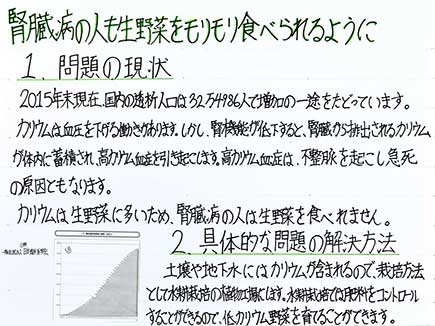 腎臓病の人も生野菜をモリモリ食べられるように
1. 問題の現状
2015年末現在、国内の透析人口は32万4986人で増加の一途をたどっています。
カリウムは血圧を下げる働きがあります。しかし、腎機能が低下すると、腎臓から排出されるカリウム
が体内に蓄積され、高カリウム血症を引き起こします。高カリウム血症は、不整脈を起こし急死
の原因ともなります。
カリウムは、生野菜に多いため、腎臓病の人は生野菜を食べれません。
2. 具体的な問題の解決方法
土壌や地下水にはカリウムが含まれるので、栽培方法
として水耕栽培の植物工場にします。水耕栽培では肥料をコントロール
することができるので、低カリウム野菜を育てることができます。